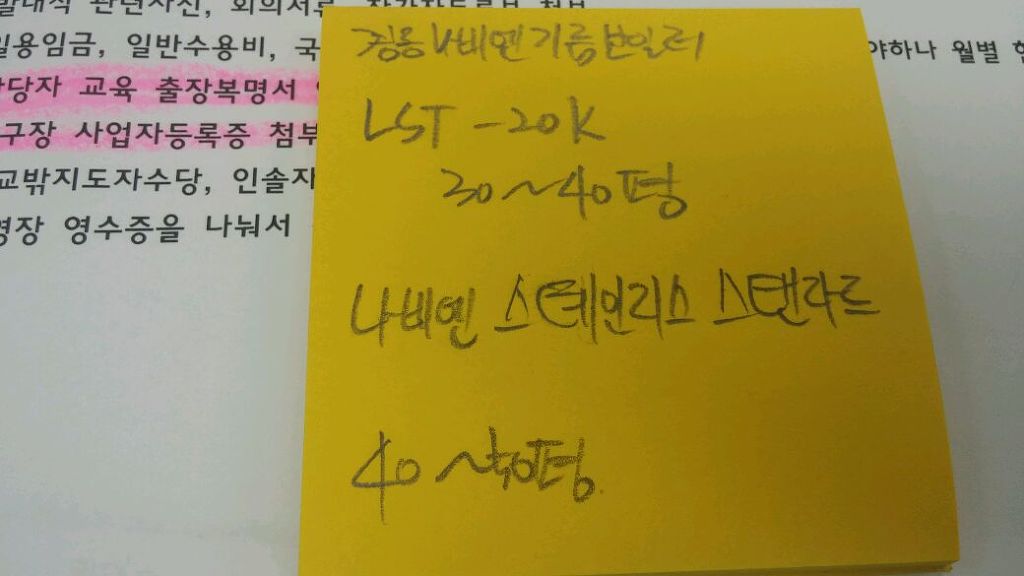 발대식 관련사진, 회의서류,
일용임금, 일반수용비, 국 야하나 월별
당자 교육 출장복명서
구장 사업자등록증 첨부
교밖지도자수당, 인솔자
영장 영수증을 나눠서
경동나비엔 기름보일러
LST -20K
30~40평
나비엔 스테인리스 스탠다드
40~50평